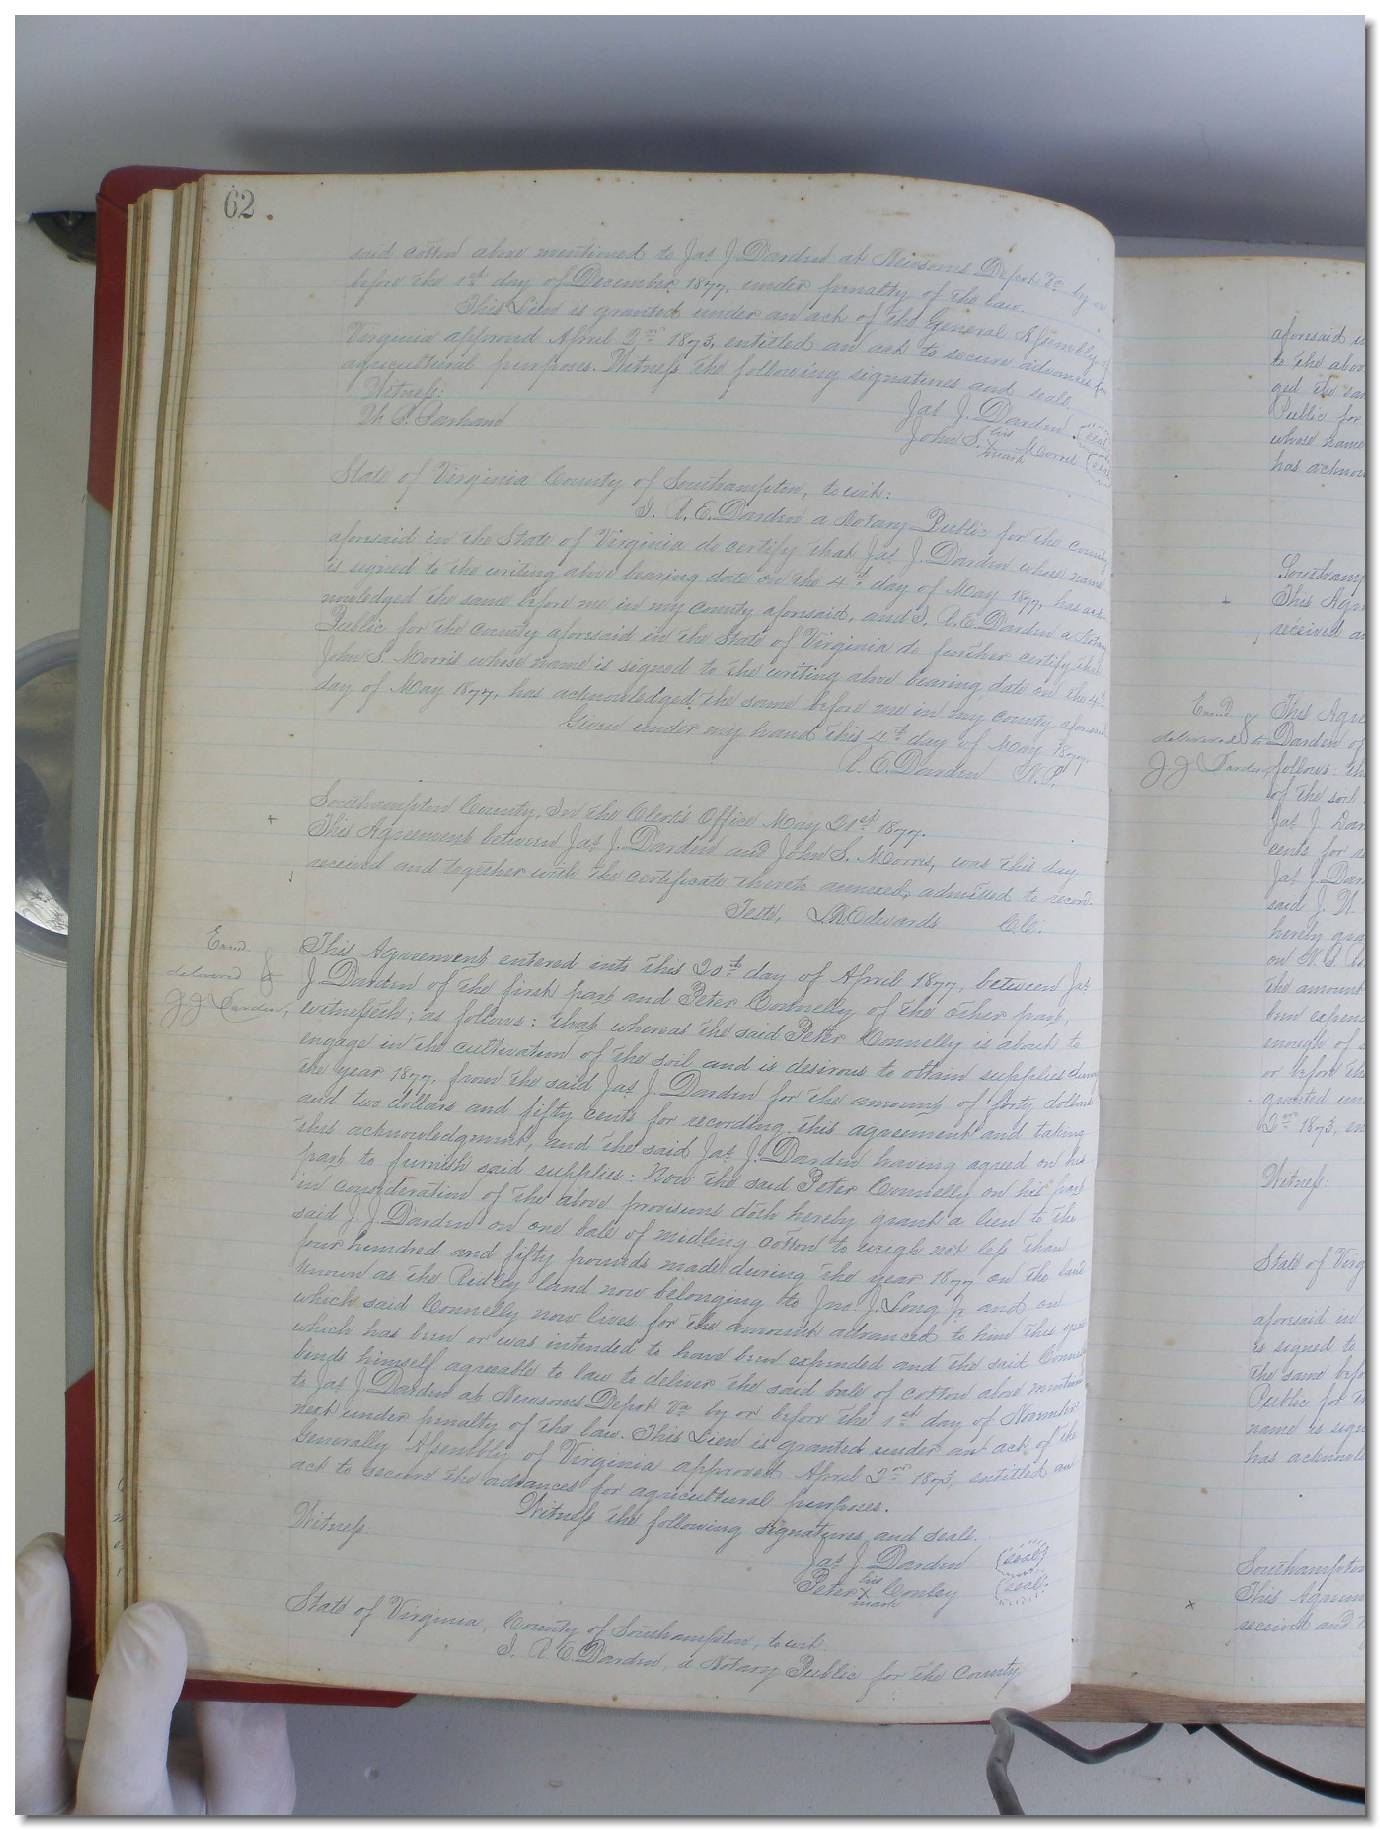 62
said cotton above mentioned to Jas J. Darden at Newsoms Depot Va by or
before the 1st day of December 1877, under penalty of the law.
This Lien is granted under an act of the General Assembly of
Virginia approved April 2nd 1873, entitled an act to secure advances for
agricultural purposes. Witness the following signatures and seals.
Witness: Jas J. Darden (seal)
Th P. Parham John S. his X mark Morris (seal)
State of Virginia County of Southampton, to wit:
I, R. E. Darden a Notary Public for the County
aforesaid in the State of Virginia do certify that Jas J. Darden whose name
is signed to the writing above bearing date on the 4th day of May 1877, has ack-
nowledged the same before me in my county aforesaid, and I, R. E. Darden a Notary
Public for the County aforesaid in the State of Virginia do further certify that
John S. Morris whose name is signed to the writing above bearing date on the 4th
day of May 1877, has acknowledged the same before me in my county aforesaid
Given under my hand this 4th day of May 1877.
R. E. Darden N.P.
Southampton County, In the Clerk's Office May 21st 1877.
This Agreement between Jas J. Darden and John S. Morris, was this day
received and together with the certificate thereto annexed, admitted to record.
Teste, L. R. Edwards Clk.
Examd &
delivered to
J J Darden,
This Agreement entered into this 20th day of April 1877, between Jas
J Darden of the first part and Peter Connelly of the other part,
witnesseth; as follows: that whereas the said Peter Connelly is about to
engage in the cultivation of the soil and is desirous to obtain supplies during
the year 1877, from the said Jas J. Darden for the amount of forty dollars
and two dollars and fifty cents for recording this agreement and taking
this acknowledgment, and the said Jas J. Darden having agreed on his
part to furnish said supplies: Now the said Peter Connelly on his part
in consideration of the above provisions doth hereby grant a lien to the
said J. J. Darden on one bale of midling cotton to weigh not less than
four hundred and fifty pounds made during the year 1877 on the land
known as the Ridley land now belonging to Jno. J. Long Jr and on
which said Connelly now lives for the amount advanced to him this year
which has been or was intended to have been expended and the said Connelly
binds himself agreeable to law to deliver the said bale of cotton above mentioned
to Jas J. Darden at Newsoms Depot Va by or before the 1st day of November
next under penalty of the law. This Lien is granted under an act of the
Generally Assembly of Virginia approved April 2nd 1873, entitled an
act to secure the advances for agricultural purposes.
Witness the following signatures and seals.
Witness. Jas J Darden (seal)
Peter his X mark Conley (seal)
State of Virginia, County of Southampton, to wit.
I, R E Darden, a Notary Public for the County
aforesaid in
to the abov
ged the sa
Public for
whose name
has acknow
Southamp
This Agre
received an
Examd &
delivered to
J J Darden,
This Agre
Darden of
follows: th
of the soil
Jas J. Dar
cents for
Jas J Dar
said J. W.
hereby gra
on
the amount
been expen
enough of
or before the
granted un
2nd 1873, en
Witness:
State of Virg
aforesaid in
is signed to
the same befo
Public for th
name is sign
has acknowle
Southampton
This Agreem
received and